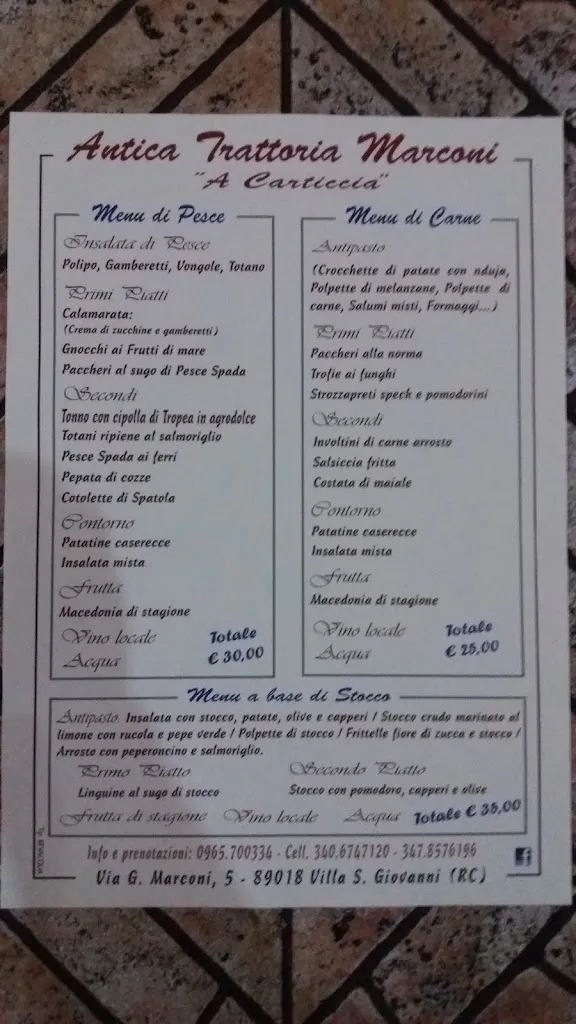 Antica Trattoria Marconi
"A Carticcia"
Menu di Pesce
Insalata di Pesce
Polipo, Gamberetti, Vongole, Totano
Primi Piatti
Calamarata:
(Crema di zucchine e gamberetti)
Gnocchi ai Frutti di mare
Paccheri al sugo di Pesce Spada
Secondi
Tonno con cipolla di Tropea in agrodolce
Totani ripiene al salmoriglio
Pesce Spada ai ferri
Pepata di cozze
Cotolette di Spatola
Contorno
Patatine caserecce
Insalata mista
Frutta
Macedonia di stagione
Vino locale
Acqua
Totale
€ 30,00
Menu di Carne
Antipasto
(Crocchette di patate con nduja,
Polpette di melanzane, Polpette di
carne, Salumi misti, Formaggi...)
Primi Piatti
Paccheri alla norma
Trofie ai funghi
Strozzapreti speck e pomodorini
Secondi
Involtini di carne arrosto
Salsiccia fritta
Costata di maiale
Contorno
Patatine caserecce
Insalata mista
Frutta
Macedonia di stagione
Vino locale
Acqua
Totale
€ 25,00
Menu a base di Stocco
Antipasto: Insalata con stocco, patate, olive e capperi / Stocco crudo marinato al
limone con rucola e pepe verde / Polpette di stocco / Frittelle fiore di zucca e stocco /
Arrosto con peperoncino e salmoriglio.
Primo Piatto
Linguine al sugo di stocco
Secondo Piatto
Stocco con pomodoro, capperi e olive
Frutta di stagione Vino locale Acqua Totale € 35,00
Info e prenotazioni: 0965.700334 - Cell. 340.6747120 - 347.8576196
Via G. Marconi, 5 - 89018 Villa S. Giovanni (RC)
f